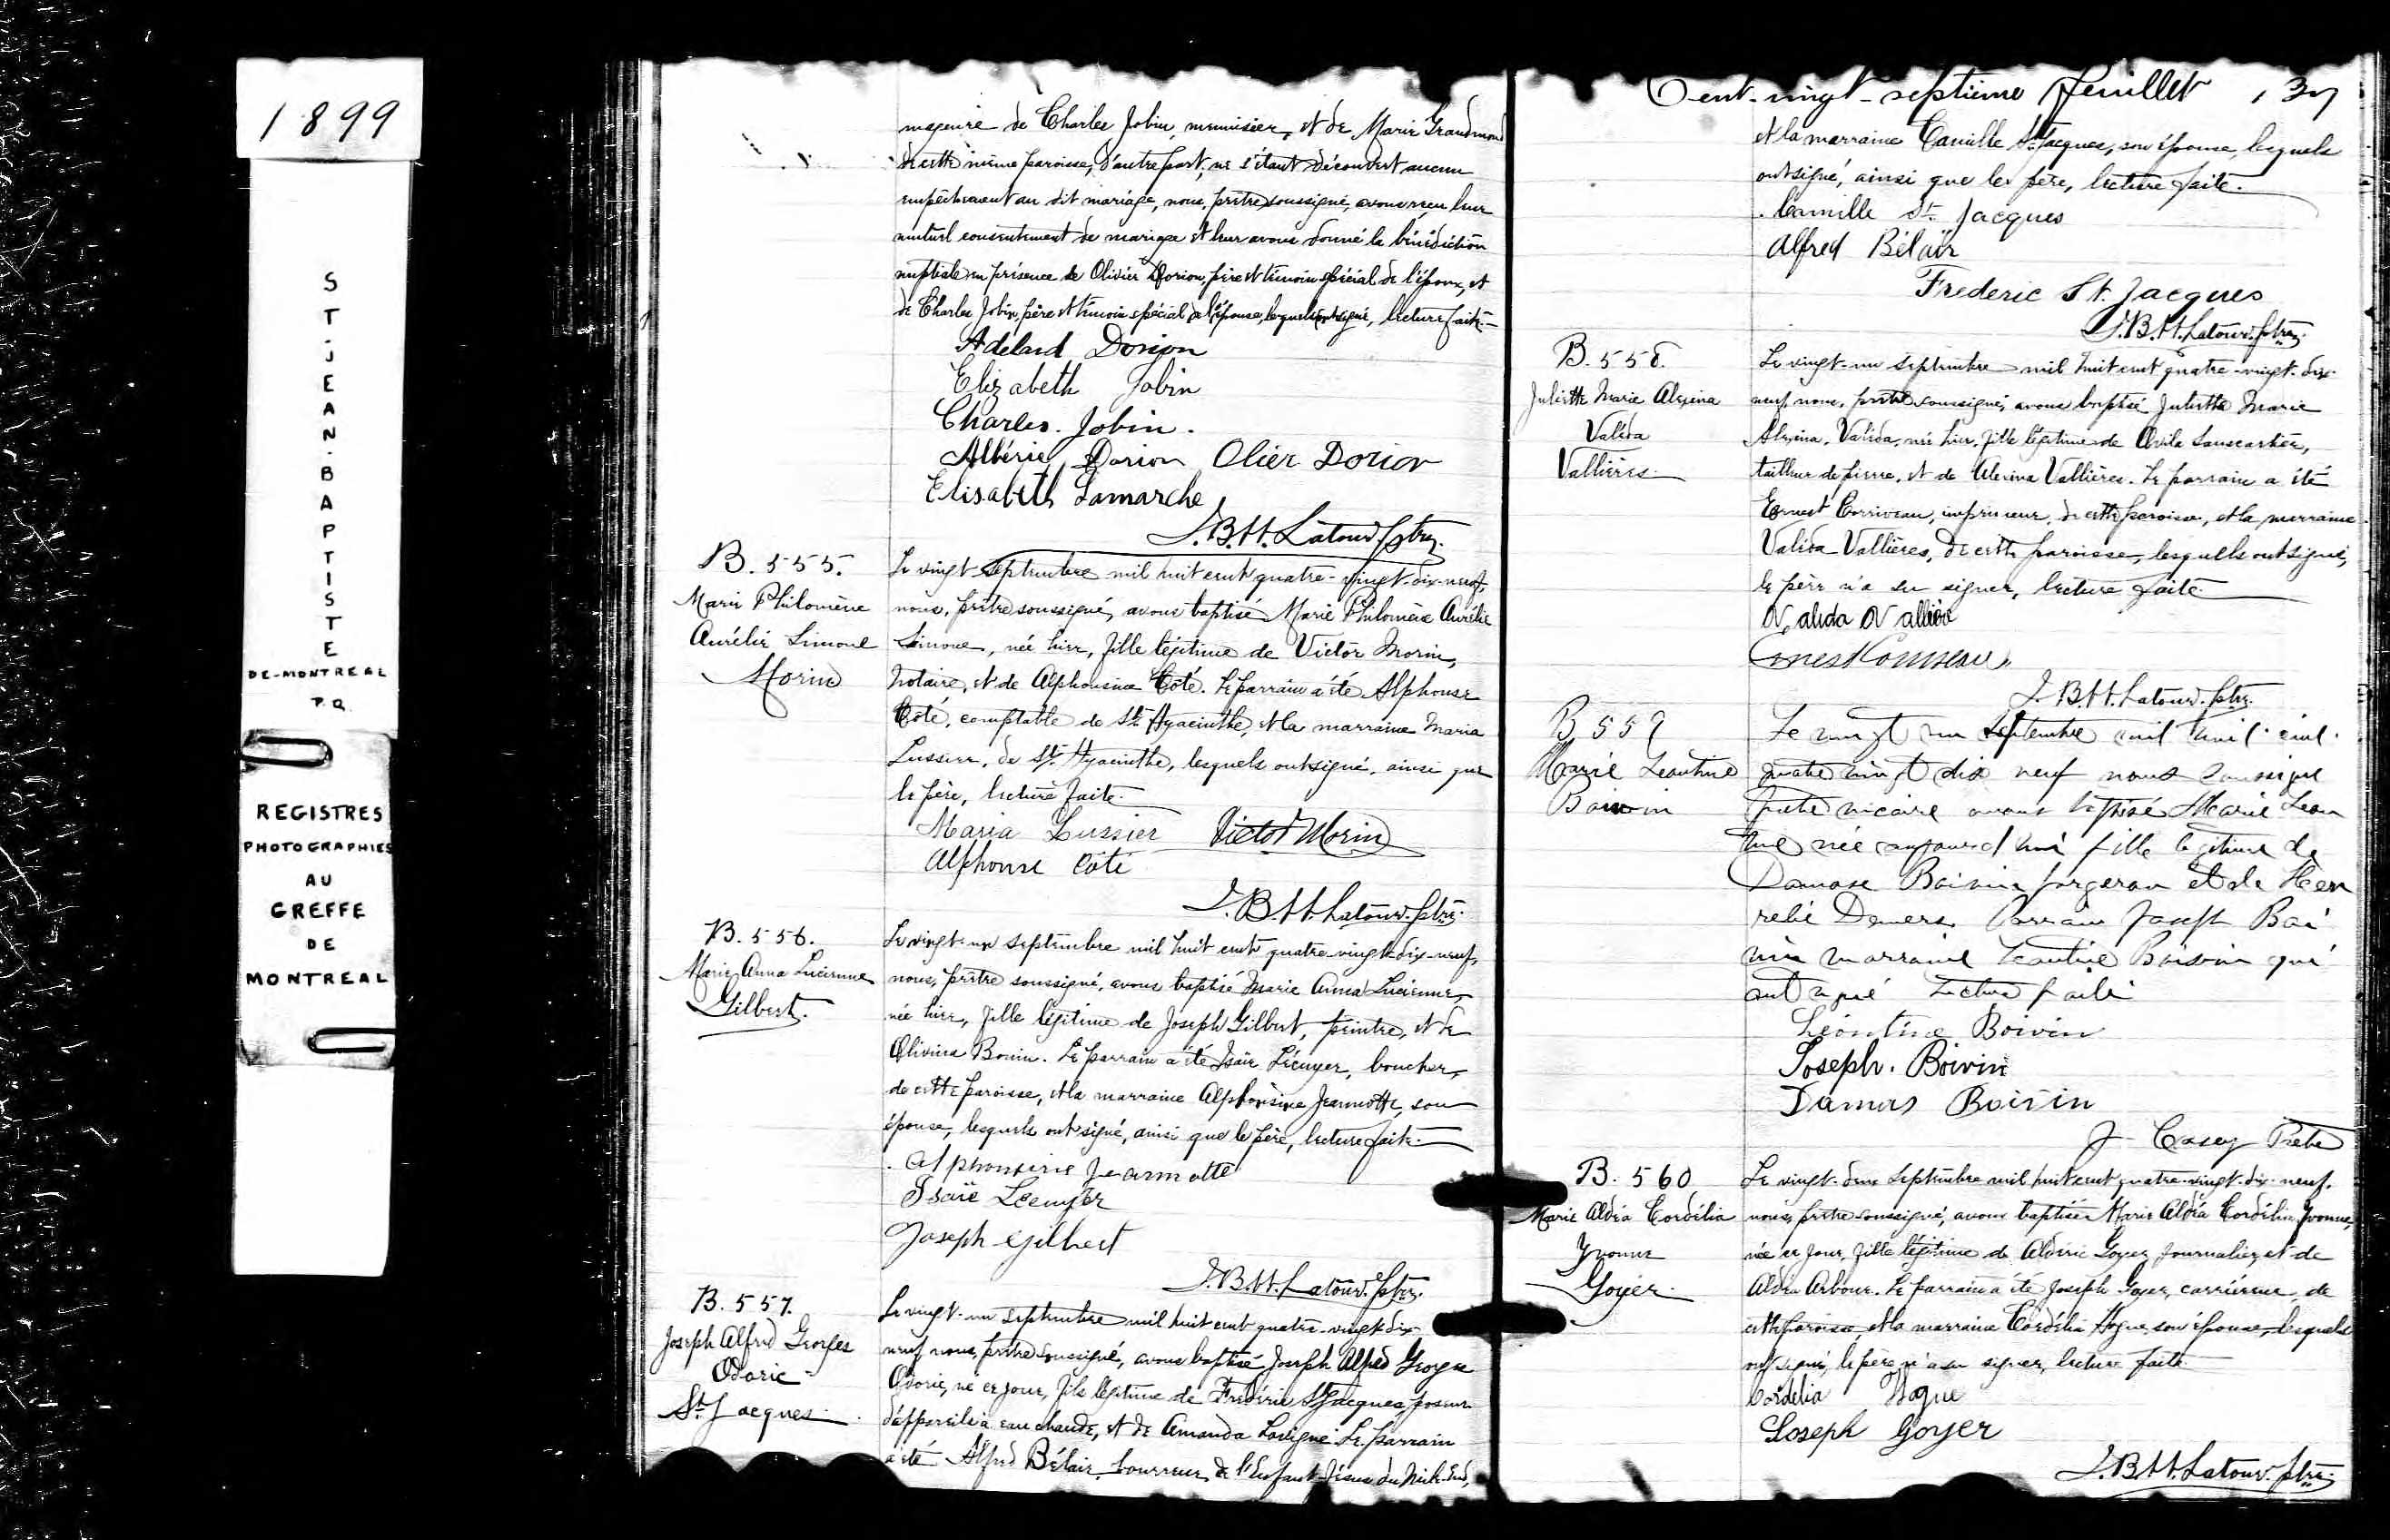 1899
ST-JEAN-BAPTISTE
DE-MONTREAL
P.Q.
REGISTRES
PHOTOGRAPHIES
AU
GREFFE
DE
MONTREAL
majeure de Charles Jobin, menuisier, et de Marie Grandmond
de cette même paroisse, d'autre part; ne s'étant découvert aucun
empêchement au dit mariage, nous, prêtre soussigné, avons reçu leur
mutuel consentement de mariage et leur avons donné la bénédiction
nuptiale en présence de Olivier Dorion, père et témoin spécial de l'époux, et
de Charles Jobin, père et témoin spécial de l'épouse, lesquels ont signé, lecture faite.
Adelard Dorion
Elizabeth Jobin
Charles. Jobin.
Albéric Dorion Olier Dorion
Elisabeth Lamarche
J.B.H. Latour. ptre.
B. 555.
Marie Philomène
Aurélie Simone
Morin
Le vingt septembre mil huit cent quatre-vingt-dix-neuf,
nous, prêtre soussigné, avons baptisé Marie Philomène Aurélie
Simone, née hier, fille légitime de Victor Morin,
notaire, et de Alphonsine Côté. Le parrain a été Alphonse
Côté, comptable de St. Hyacinthe, et la marraine Maria
Lussier, de St. Hyacinthe, lesquels ont signé, ainsi que
le père, lecture faite.
Maria Lussier Victor Morin
Alphonse Côté
J.B.H. Latour. ptre.
B. 556.
Marie Anna Lucienne
Gilbert.
Le vingt-un septembre mil huit cent quatre-vingt-dix-neuf,
nous, prêtre soussigné, avons baptisé Marie Anna Lucienne,
née hier, fille légitime de Joseph Gilbert, peintre, et de
Olivina Bonin. Le parrain a été Isaïe Lécuyer, boucher,
de cette paroisse, et la marraine Alphonsine Jeannotte, son
épouse, lesquels ont signé, ainsi que le père, lecture faite.
Alphonsine Jeannotte
Isaïe Lecuyer
Joseph Gilbert
J.B.H. Latour. ptre.
B. 557.
Joseph Alfred Georges
Odoric
St. Jacques
Le vingt-un septembre mil huit cent quatre-vingt-dix-
neuf nous, prêtre soussigné, avons baptisé Joseph Alfred George
Odoric, né ce jour, fils légitime de Frédéric St. Jacques, poseur
d'appareils à eau chaude, et de Amanda Lavigne. Le parrain
a été Alfred Bélair, fourreur, de l'Enfant-Jésus du Mile-End,
Cent-vingt-septième feuillet 137
et la marraine Camille St. Jacques, son épouse, lesquels
ont signé, ainsi que le père, lecture faite.
Camille St. Jacques
Alfred Bélaïr
Frederic St. Jacques
J.B.H. Latour. ptre.
B. 558.
Juliette Marie Alexina
Valida
Vallières
Le vingt-un septembre mil huit cent quatre-vingt-dix-
neuf, nous, prêtre soussigné, avons baptisé Juliette Marie
Alexina Valida, née hier, fille légitime de Avila Sanscartier,
tailleur de pierre, et de Alexina Vallières. Le parrain a été
Ernest Corriveau, imprimeur, de cette paroisse, et la marraine
Valida Vallières, de cette paroisse, lesquels ont signé,
le père n'a su signer, lecture faite.
Valida Vallière
J.B.H. Latour. ptre.
B 559
Marie Leontine
Boivin
Le vingt un Septembre mil huit cent
quatre vingt dix neuf nous soussigné
prêtre vicaire avons baptisé Marie Leon
tine née aujourd'hui fille légitime de
Damase Boivin forgeron et de Hen
Demers Parrain Joseph Boi
vin marraine Leontine Boivin qui
ont signé Lecture faite
Léontine Boivin
Joseph. Boivin
Damas Boivin
J Casey Ptre
B. 560
Marie Aldéa Cordélia
Yvonne
Goyer.
Le vingt-deux septembre mil huit cent quatre-vingt-dix-neuf,
nous, prêtre soussigné, avons baptisé Marie Aldéa Cordélia Yvonne,
née ce jour, fille légitime de Aldéric Goyer, journalier, et de
Aldéa Arbour. Le parrain a été Joseph Goyer, carrier, de
cette paroisse, et la marraine Cordélia Hogue, son épouse, lesquels
ont signé, le père n'a su signer, lecture faite.
Cordélia Hogue
Joseph Goyer
J.B.H. Latour. ptre.